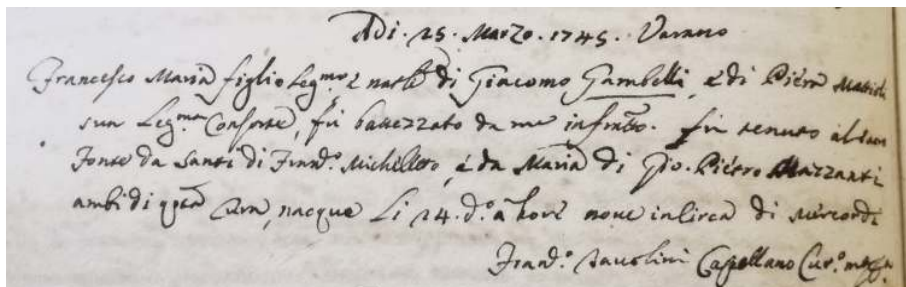 Adi. 25. Marzo. 1745. Varano
Francesco Maria figlio Leg.mo è nat.le di Giacomo Gambelli, è di Piéra Mattioli
sua Leg.ma Consorte, fù battezzato da me infratto. fù tenuto al sacro
Fonte da Santi di Fran.o Micheletto, è da Maria di Gio. Piétro Mazzanti
ambi di qta Cura, nacque Li 24. d.o à hore nove in Circa di Mercordi
Fran.o Capellano Cur.o